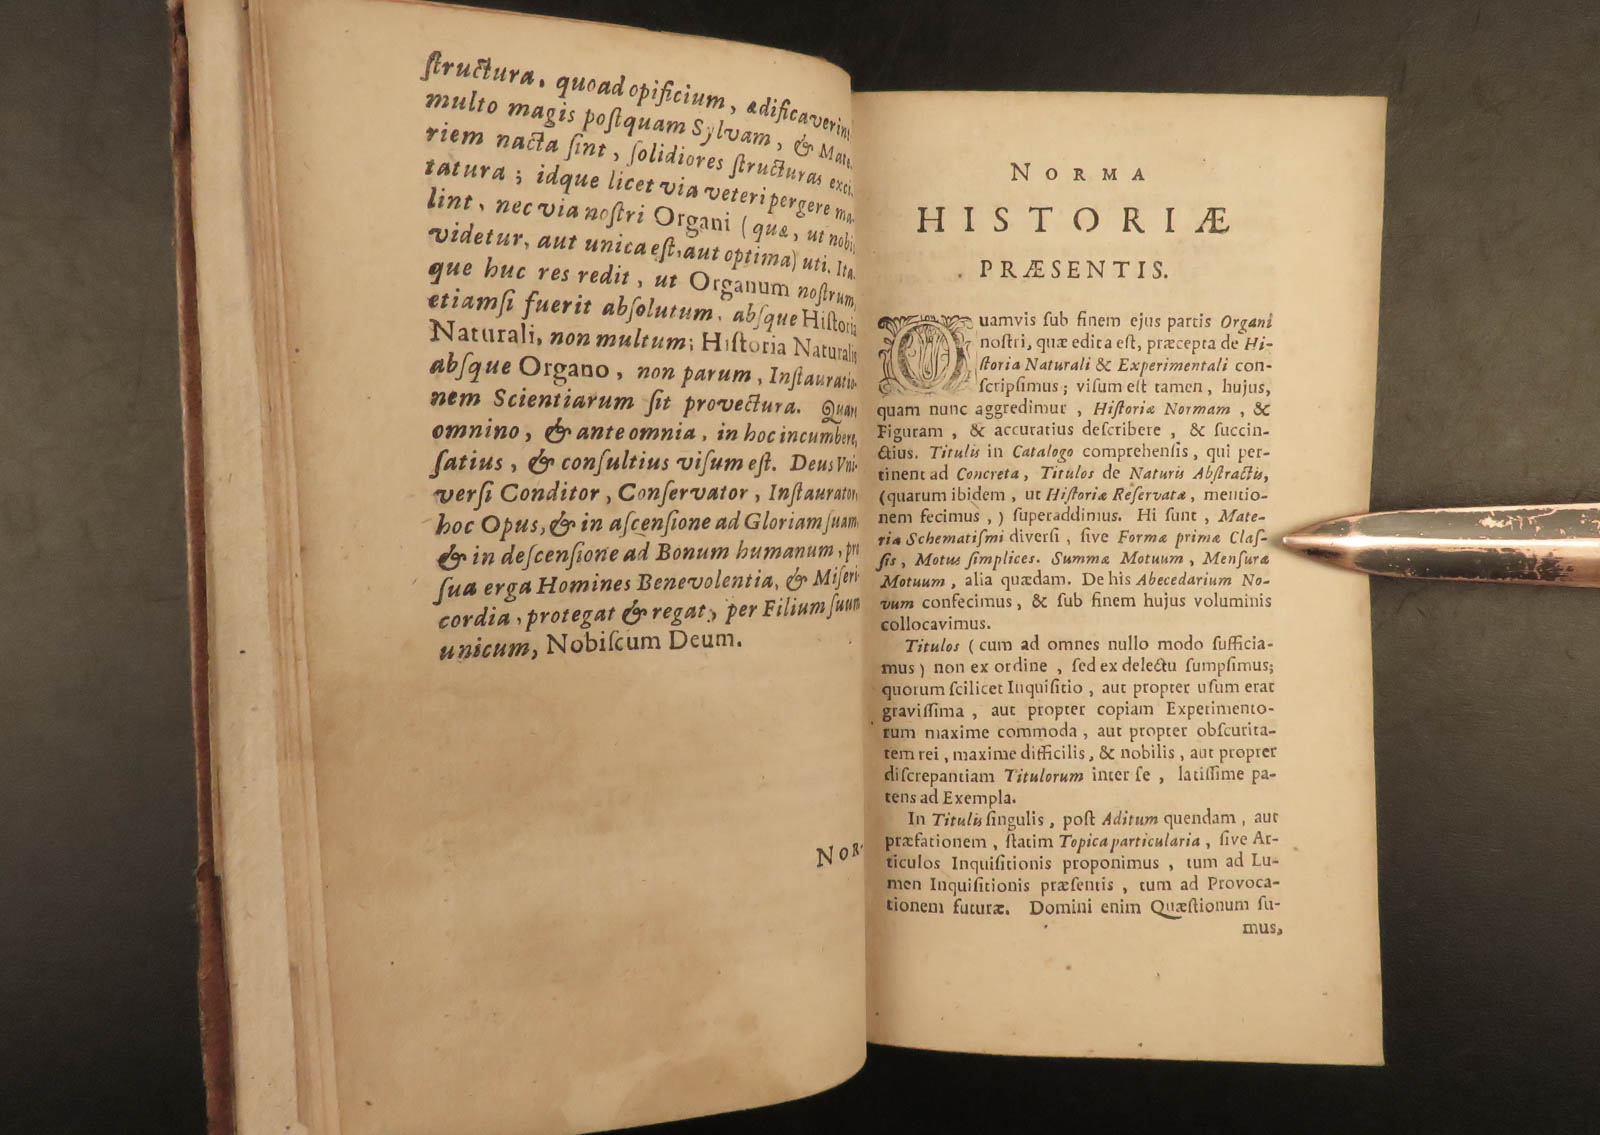 ſtructura, quoad opificium, ædificaverint
multo magis poſtquam Sylvam, & Mate-
riem nacta ſint, ſolidiores ſtructuras exci-
tatura; idque licet via veteri pergere ma-
lint, nec via noſtri Organi (quæ, ut nobis
videtur, aut unica eſt, aut optima) uti. Ita-
que huc res redit, ut Organum noſtrum,
etiamſi fuerit abſolutum, abſque Hiſtoria
Naturali, non multum; Hiſtoria Naturalis
abſque Organo, non parum, Inſtauratio-
nem Scientiarum ſit provectura. Quare
omnino, & ante omnia, in hoc incumbere,
ſatius, & conſultius viſum eſt. Deus Vni-
verſi Conditor, Conſervator, Inſtaurator,
hoc Opus, & in aſcenſione ad Gloriam ſuam,
& in deſcenſione ad Bonum humanum, pro
ſua erga Homines Benevolentia, & Miſeri-
cordia, protegat & regat, per Filium ſuum
unicum, Nobiſcum Deum.
NOR-
NORMA
HISTORIÆ
PRÆSENTIS.
Quamvis ſub finem ejus partis Organi
noſtri, quæ edita eſt, præcepta de Hi-
ſtoria Naturali & Experimentali con-
ſcripſimus; viſum eſt tamen, hujus,
quam nunc aggredimur, Hiſtoriæ Normam, &
Figuram, & accuratius deſcribere, & ſuccin-
ctius. Titulis in Catalogo comprehenſis, qui per-
tinent ad Concreta, Titulos de Naturis Abſtractis,
(quarum ibidem, ut Hiſtoriæ Reſervatæ, mentio-
nem fecimus,) ſuperaddimus. Hi ſunt, Mate-
ria Schematiſmi diverſi, ſive Formæ primæ Claſ-
ſis, Motus ſimplices. Summæ Motuum, Menſuræ
Motuum, alia quædam. De his Abecedarium No-
vum confecimus, & ſub finem hujus voluminis
collocavimus.
Titulos (cum ad omnes nullo modo ſufficia-
mus) non ex ordine, ſed ex delectu ſumpſimus;
quorum ſcilicet Inquiſitio, aut propter uſum erat
graviſſima, aut propter copiam Experimento-
rum maxime commoda, aut propter obſcurita-
tem rei, maxime difficilis, & nobilis, aut propter
diſcrepantiam Titulorum inter ſe, latiſſime pa-
tens ad Exempla.
In Titulis ſingulis, poſt Aditum quendam, aut
præfationem, ſtatim Topica particularia, ſive Ar-
ticulos Inquiſitionis proponimus, tum ad Lu-
men Inquiſitionis præſentis, tum ad Provoca-
tionem futuræ. Domini enim Quæſtionum ſu-
mus,